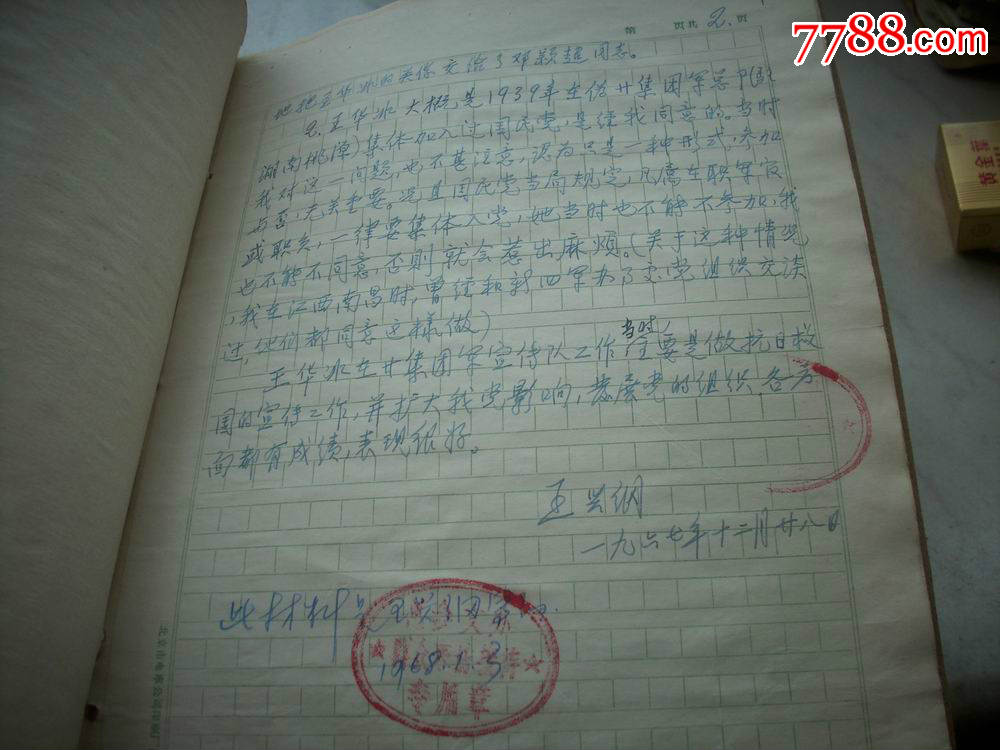 7788.com
第 页共 2. 页
她把王华冰的关係交给了邓颖超同志。
2. 王华冰大概是1939年生份廿集团军总P(驻
湖南湘潭)集体加入过国民党,是经我同意的。当时
我对这一问题,也不甚注意,认为只是一种形式,参加
与否,无关重要。况且国民党当局规定,凡属在职军官
或职员,一律要集体入党,她当时也不能不参加,我
也不能不同意,否则就会惹出麻烦。(关于这种情况
,我在江西南昌时,曾经和新四军办了事党组织交谈
过,他们都同意这样做)
王华冰在廿集团军宣传队工作当时,主要是做抗日救
国的宣传工作,并扩大我党影响,发展党的组织,各方
面都有成绩,表现很好。
王兴纲
一九六七年十二月廿八日
此材料是王兴纲写的.
1968.1.3
专属章
黄金
北京市电车公司印刷厂